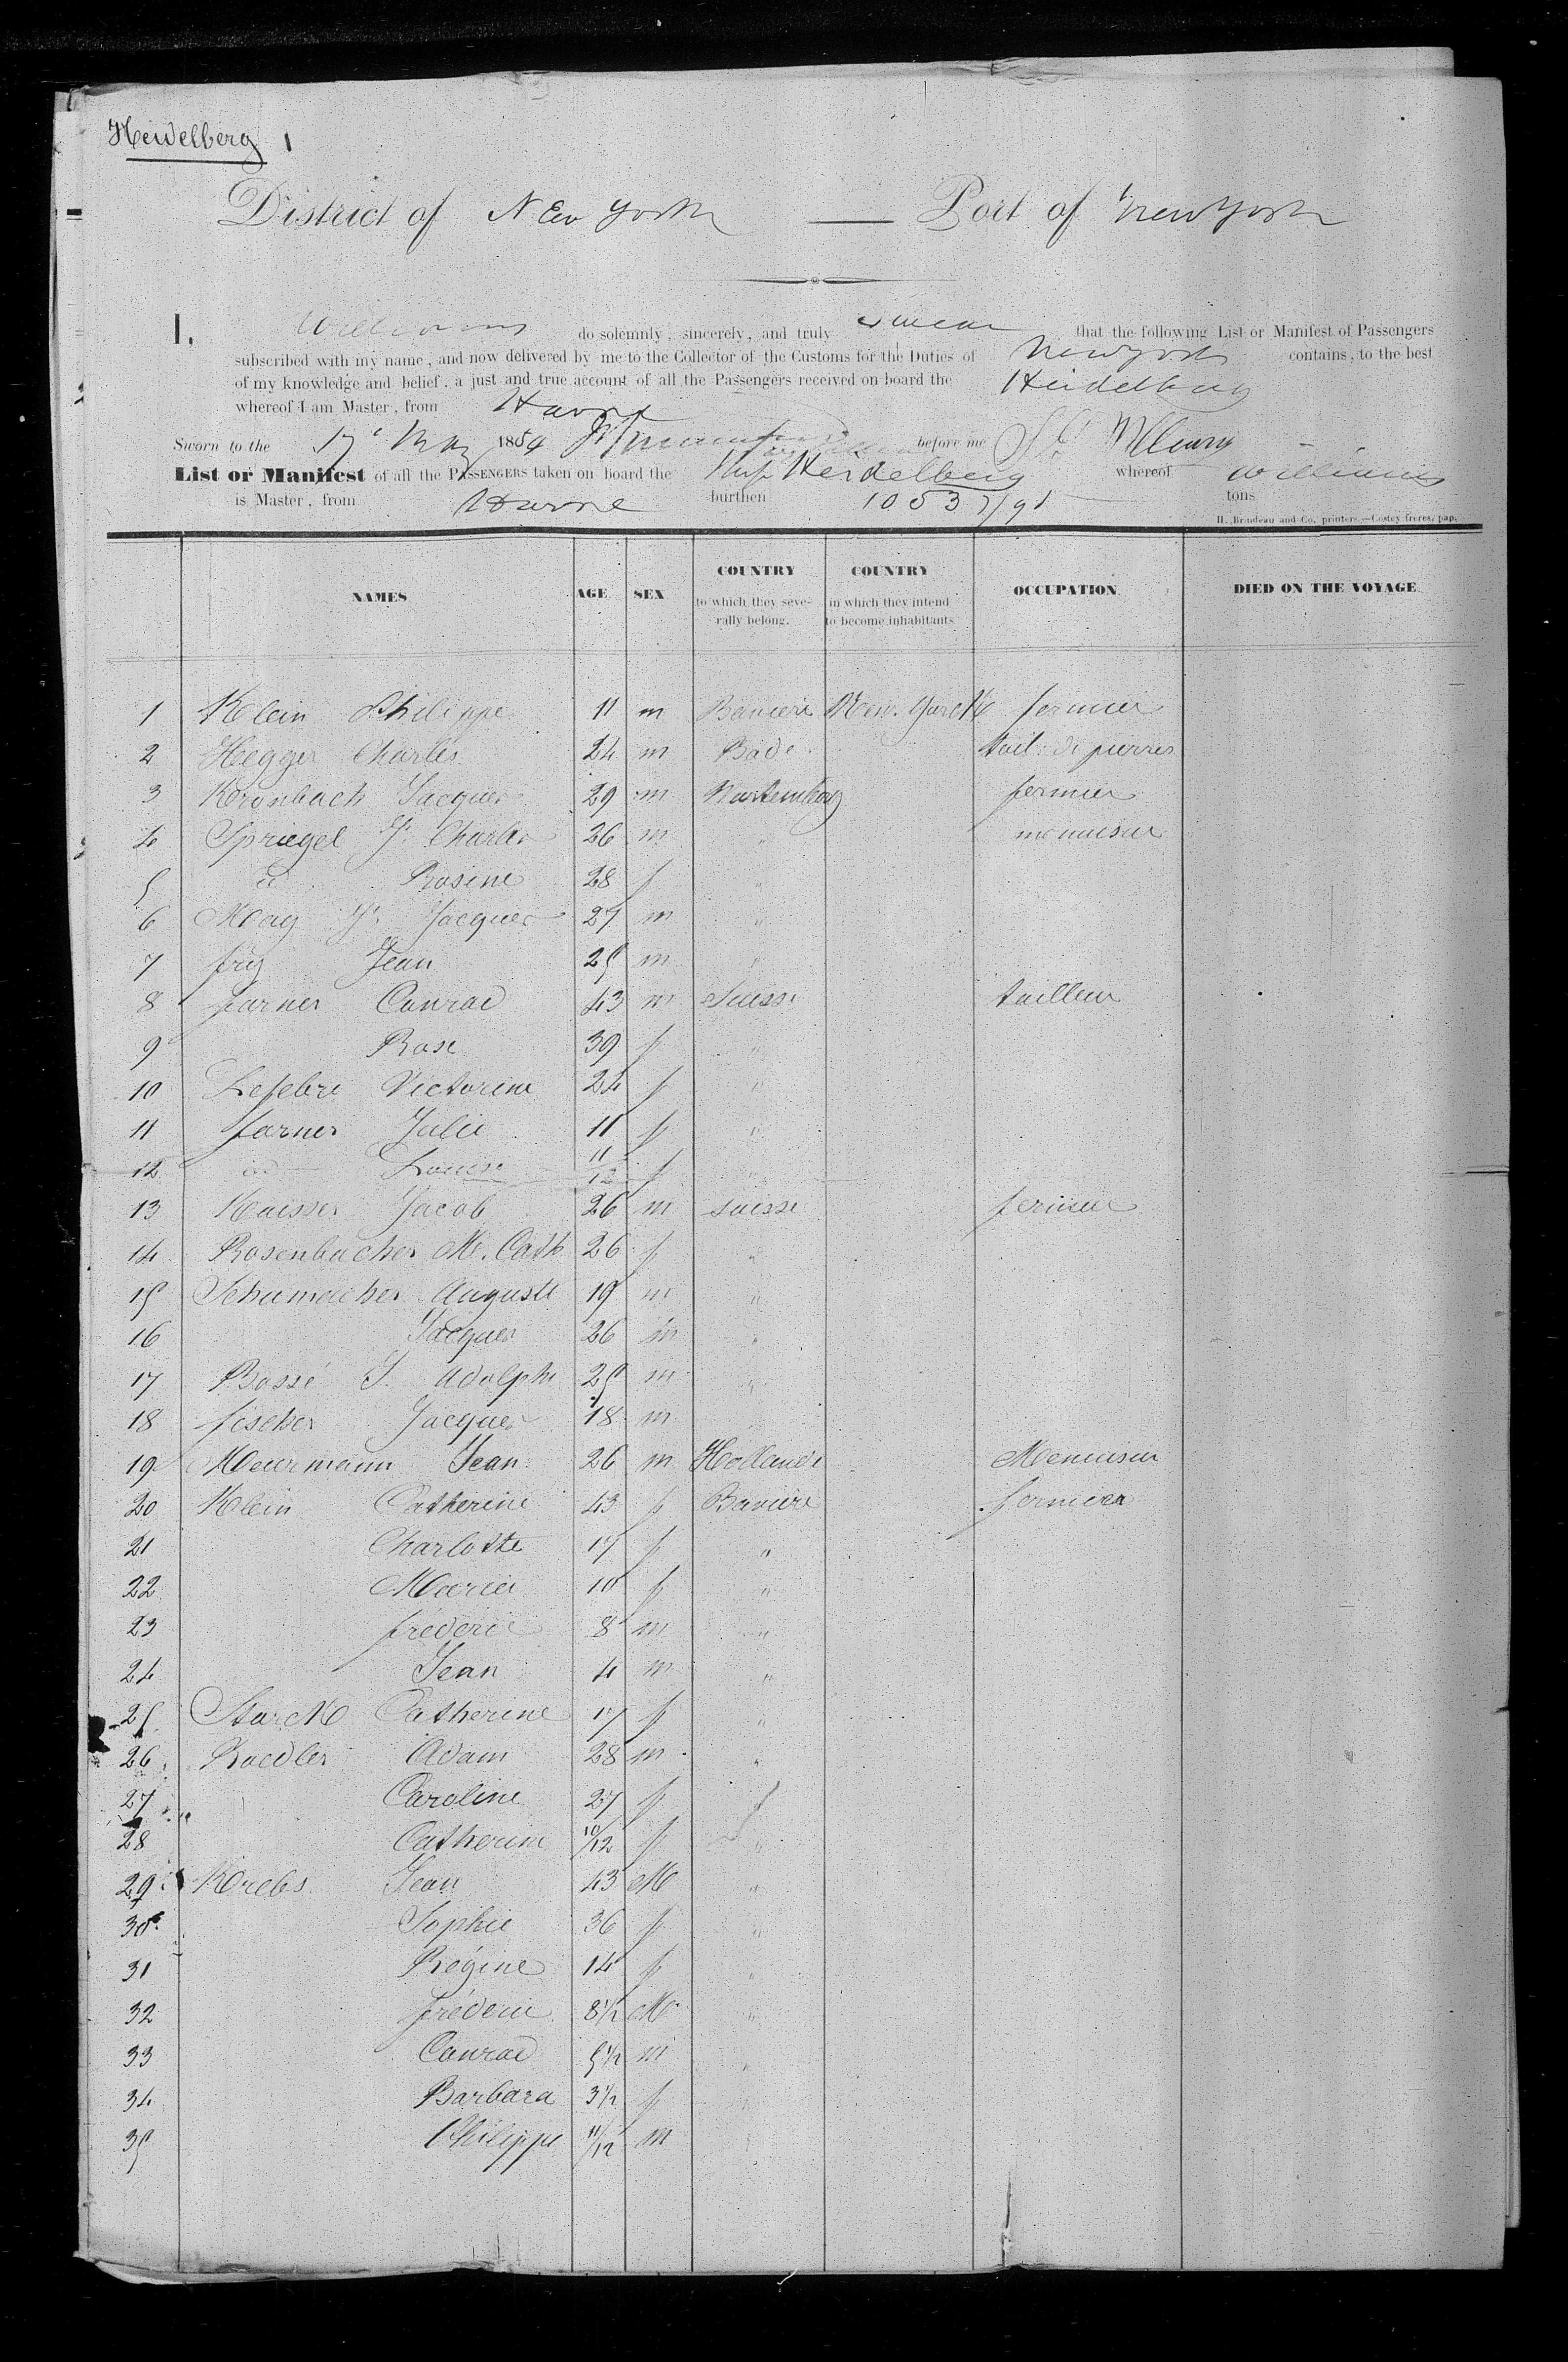 Heidelberg 1
District of New York — Port of New York
I, Williams do solemnly, sincerely, and truly swear that the following List or Manifest of Passengers
subscribed with my name, and now delivered by me to the Collector of the Customs for the Duties of New york contains, to the best
of my knowledge and belief, a just and true account of all the Passengers received on board the Heidelberg
whereof I am Master, from Havre
Sworn to the 17 May 1854 before me
List or Manifest of all the PASSENGERS taken on board the Ship Heidelberg whereof Williams
is Master, from Havre burthen 1053 tons
H. Brindeau and Co, printers.—Costey frères, pap.
NAMES AGE SEX COUNTRY to which they severally belong. COUNTRY in which they intend to become inhabitants OCCUPATION DIED ON THE VOYAGE
1 Klein Philippe 11 m Baviere New. Yorck fermier
2 Hegger Charles 24 m Bade tail. de pierres
3 Kronbach Jacques 29 m Wurtemberg fermier
4 Spriegel J. Charles 26 m " menuisier
5 id Rosine 28 f "
6 May Jn Jacques 27 m "
7 frey Jean 25 m "
8 farner Conrad 43 m Suisse tailleur
9 Rose 39 f "
10 Lefebre Victorine 24 f "
11 farner Julie 11 f "
12 id Louise 11/12 f "
13 Kaisser Jacob 26 m suisse fermier
14 Rosenbacher M. Cath 26 f "
15 Schumacher Auguste 19 m "
16 Jacques 26 m "
17 Bossé J. Adolphe 25 m "
18 fischer Jacques 18 m
19 Meurmann Jean 26 m Hollande Menuisier
20 Klein Catherine 43 f Baviere fermier
21 Charlotte 17 f "
22 Marie 10 f "
23 frederic 8 m "
24 Jean 4 m "
25 Starck Catherine 17 f "
26 Roedler Adam 28 m "
27 Caroline 27 f "
28 Catherine 10/12 f "
29 Krebs Jean 43 M "
30 Sophie 36 f "
31 Régine 14 f "
32 fréderic 8 1/2 M "
33 Conrad 5 1/2 m "
34 Barbara 3 1/2 f "
35 Philippe 11/12 m